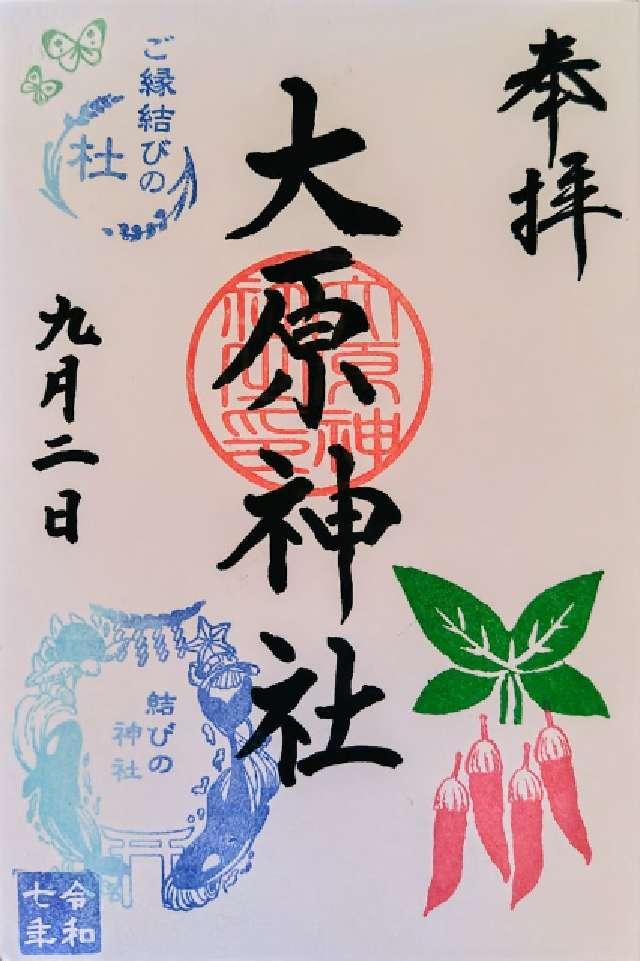 奉拝
大原神社
大原神社之印
ご縁結びの
杜
九月二日
結びの
神社
令和
七年